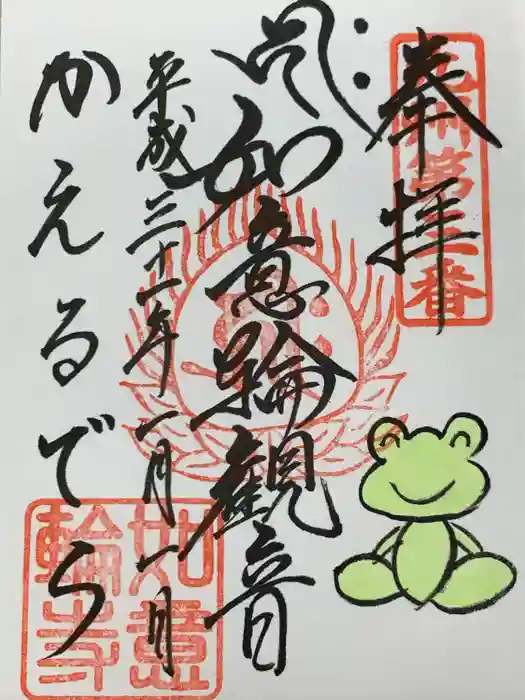 奉拝
九州第三番
如意輪観音
平成三十一年一月一日
かえるでら
如意輪寺